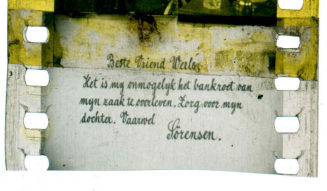 Beste Vriend Verloz
Het is my onmogelyk het bankroet van
myn zaak te overleven. Zorg voor myn
dochter. Vaarwel
Sörensen.